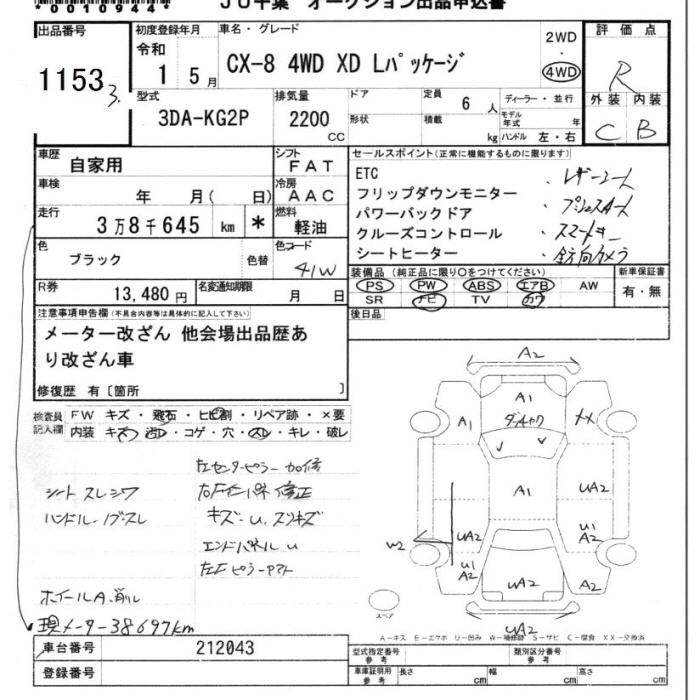 *0010944*
JU千葉 オークション出品申込書
出品番号
1153
3.
初度登録年月
令和
1 5月
車名・グレード
CX-8 4WD XD Lパッケージ
2WD
・
4WD
評価点
R
外装 内装
C B
型式
3DA-KG2P
排気量
2200
CC
ドア
形状
定員
6 人
積載
kg
ディーラー・並行
モデル年式 年
ハンドル 左・右
車歴
自家用
シフト
FAT
車検
年 月( 日)
冷房
AAC
走行
3万8千645 km *
燃料
軽油
色
ブラック
色替
色コード
41W
R券
13,480円
名変通知期限
月 日
セールスポイント(正常に機能するものに限ります)
ETC
フリップダウンモニター
パワーバックドア
クルーズコントロール
シートヒーター
・レザーシート
・プッシュスタート
・スマートキー
・全方向カメラ
装備品(純正品に限り○をつけてください)
PS PW ABS エアB AW
SR ナビ TV カワ
新車保証書
有・無
後日品
注意事項申告欄(不具合内容等は具体的に記入して下さい)
メーター改ざん 他会場出品歴あ
り改ざん車
修復歴 有〔箇所 〕
検査員
記入欄
FW キズ・飛石・ヒビ割・リペア跡・×要
内装 キズ・凹・コゲ・穴・スレ・キレ・破レ
左センターピラー 加修
シート スレシワ
右Fインパネ 修正
ハンドル・ノブスレ
キズ・U. スリキズ
エンドパネル U
左Fピラーヤマト
ホイールA.削ル
現メーター38697km
A2
A1
A1
A1
UA2
UA2
U1
A2
U1
A2
W2
UA2
UA2
スペア
A-キズ E-エクボ U-凹み W-補修跡 S-サビ C-腐食 XX-交換済
車台番号
212043
登録番号
型式指定番号
参考
類別区分番号
参考
車庫証明用
参考
長さ cm
幅 cm
高さ cm